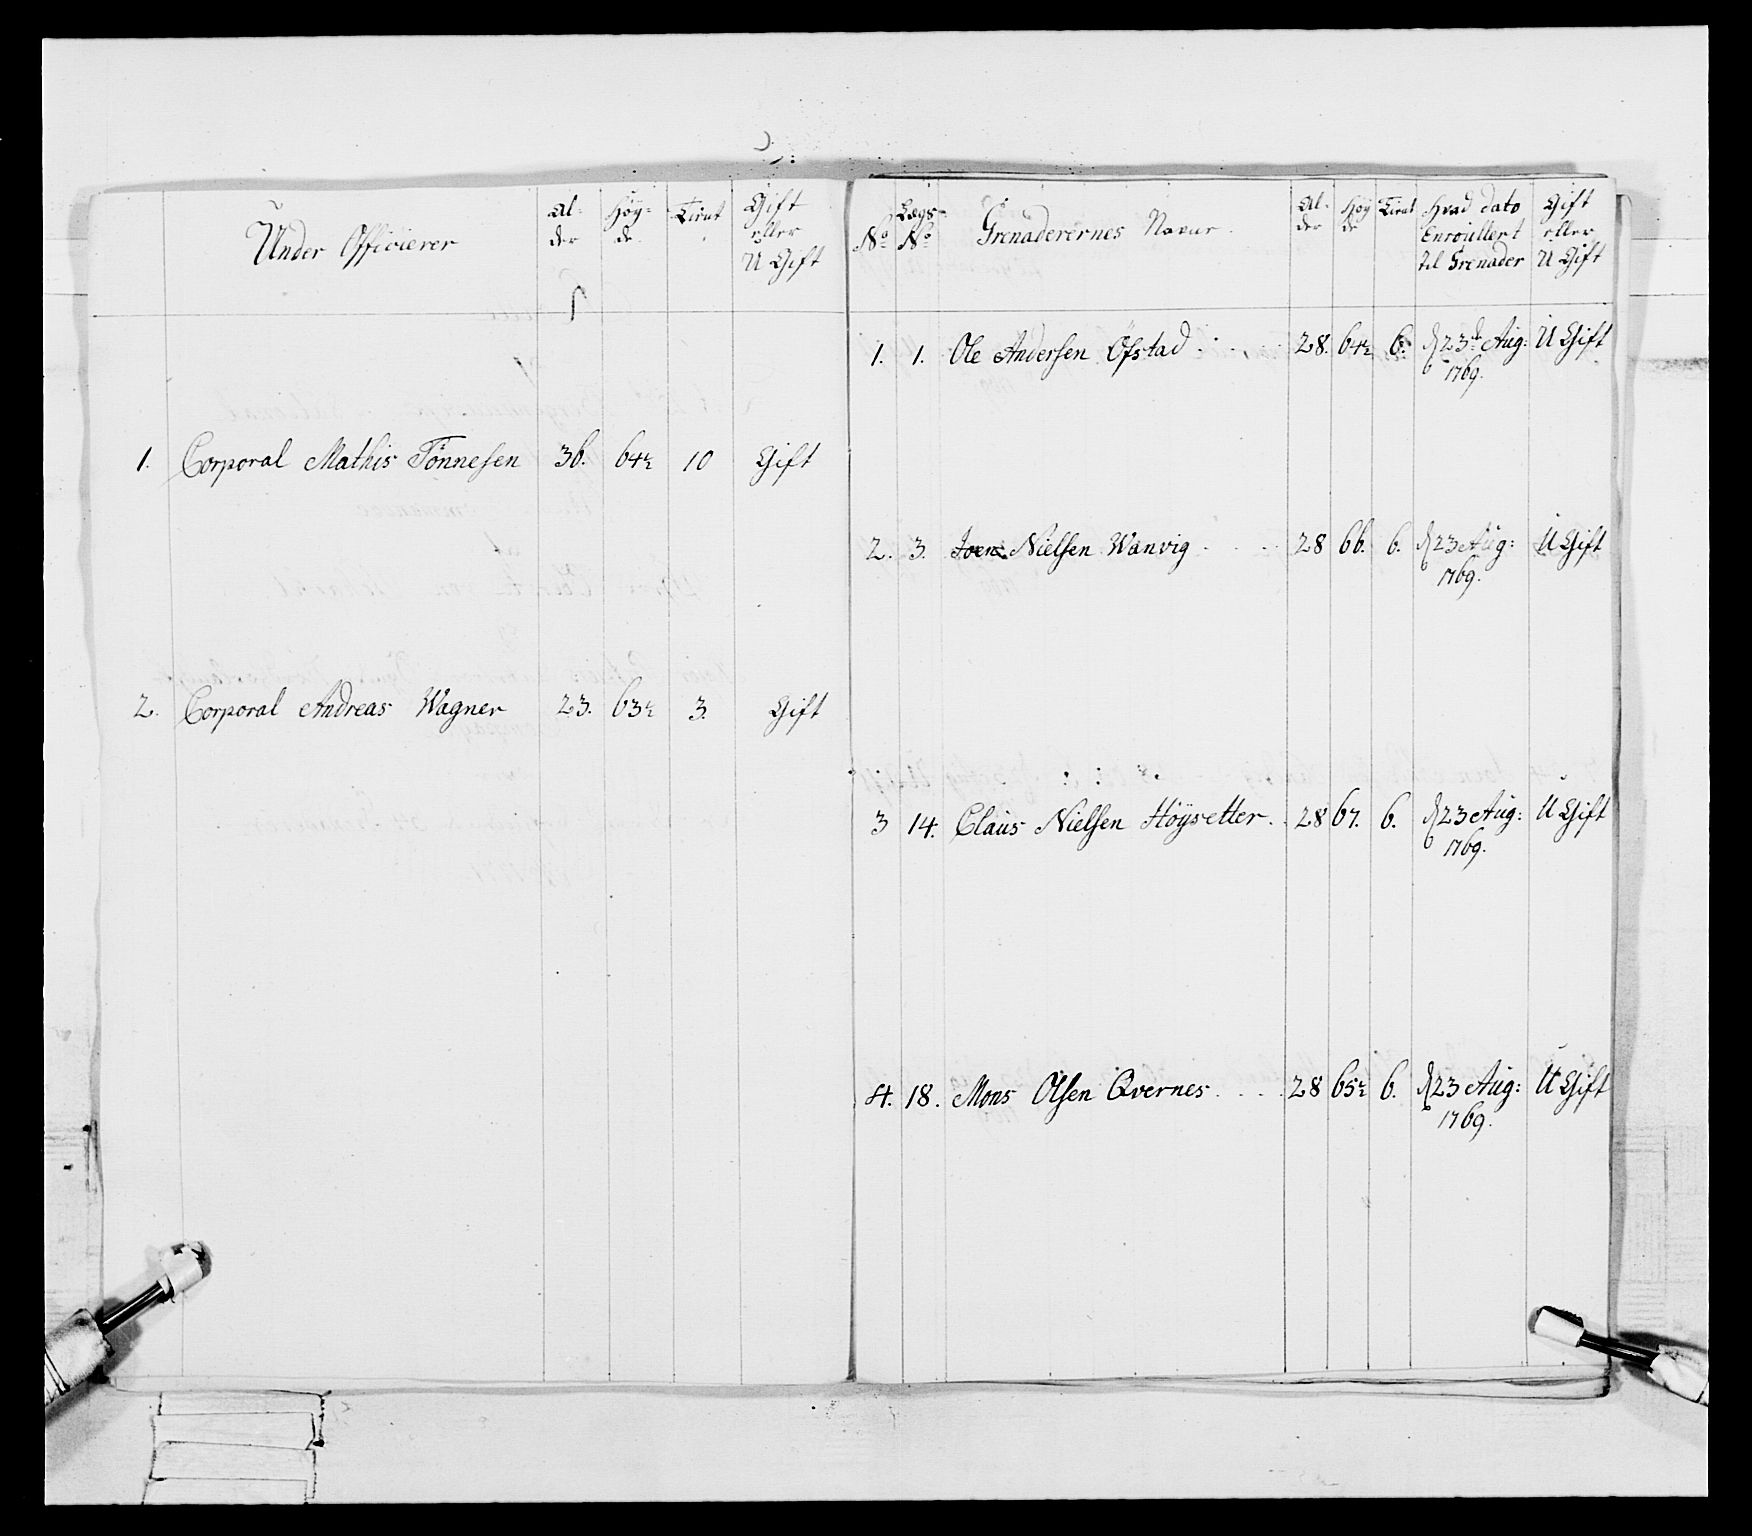 Under Officierer
Al-
der
Höy-
de
Tient
Gift
eller
U Gift
1. Corporal Mathis Tönnesen 36. 64½ 10 Gift
2. Corporal Andreas Wagner 23. 63½ 3. Gift
No
Lægs
No
Grenaderernes Navne
Al-
der
Höy
de
Tient
Hvad dato
Enroullert
til Grenader
Gift
eller
U Gift
1. 1. Ole Andersen Öfstad 28. 64½ 6. d 23de Aug: U Gift
1769.
2. 3. Joen Nielsen Wanvig 28 66. 6. d 23 Aug: U Gift
1769.
3 14. Claus Nielsen Höysetter 28 67. 6. d 23 Aug: U Gift
1769.
4. 18. Mons Olsen Qvernes 28 65½ 6. d 23 Aug: U Gift
1769.